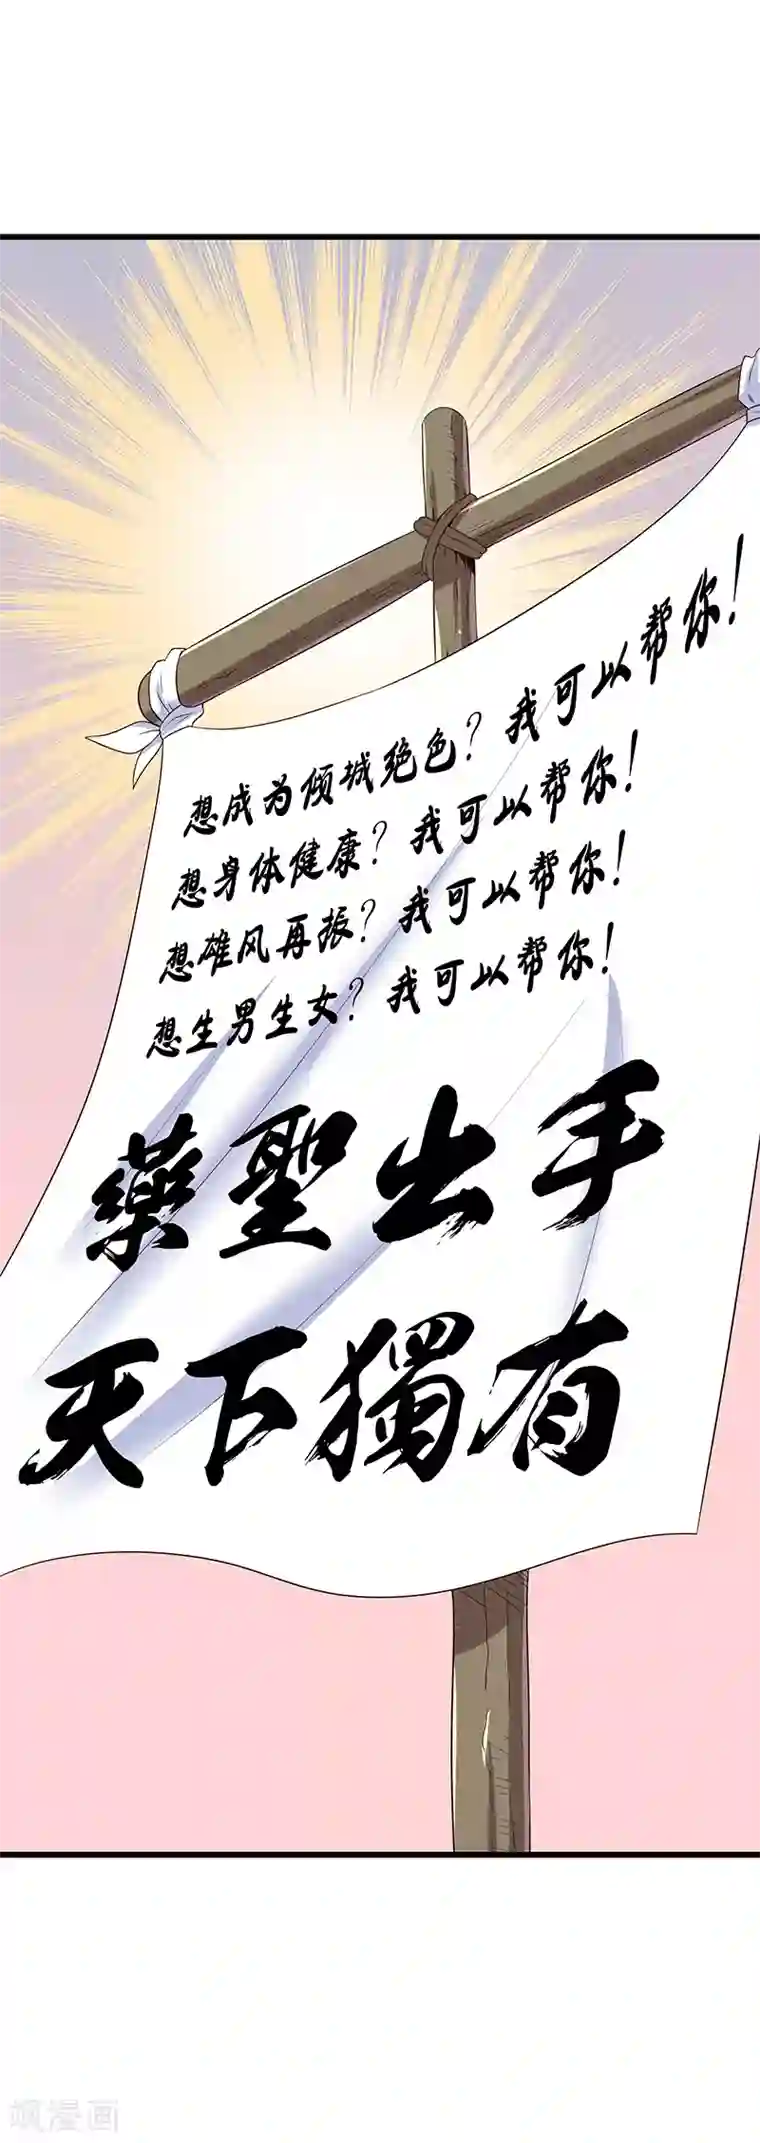 想成为倾城绝色？我可以帮你！
想身体健康？我可以帮你！
想雄风再振？我可以帮你！
想生男生女？我可以帮你！
藥聖出手
天下獨有
飒漫画